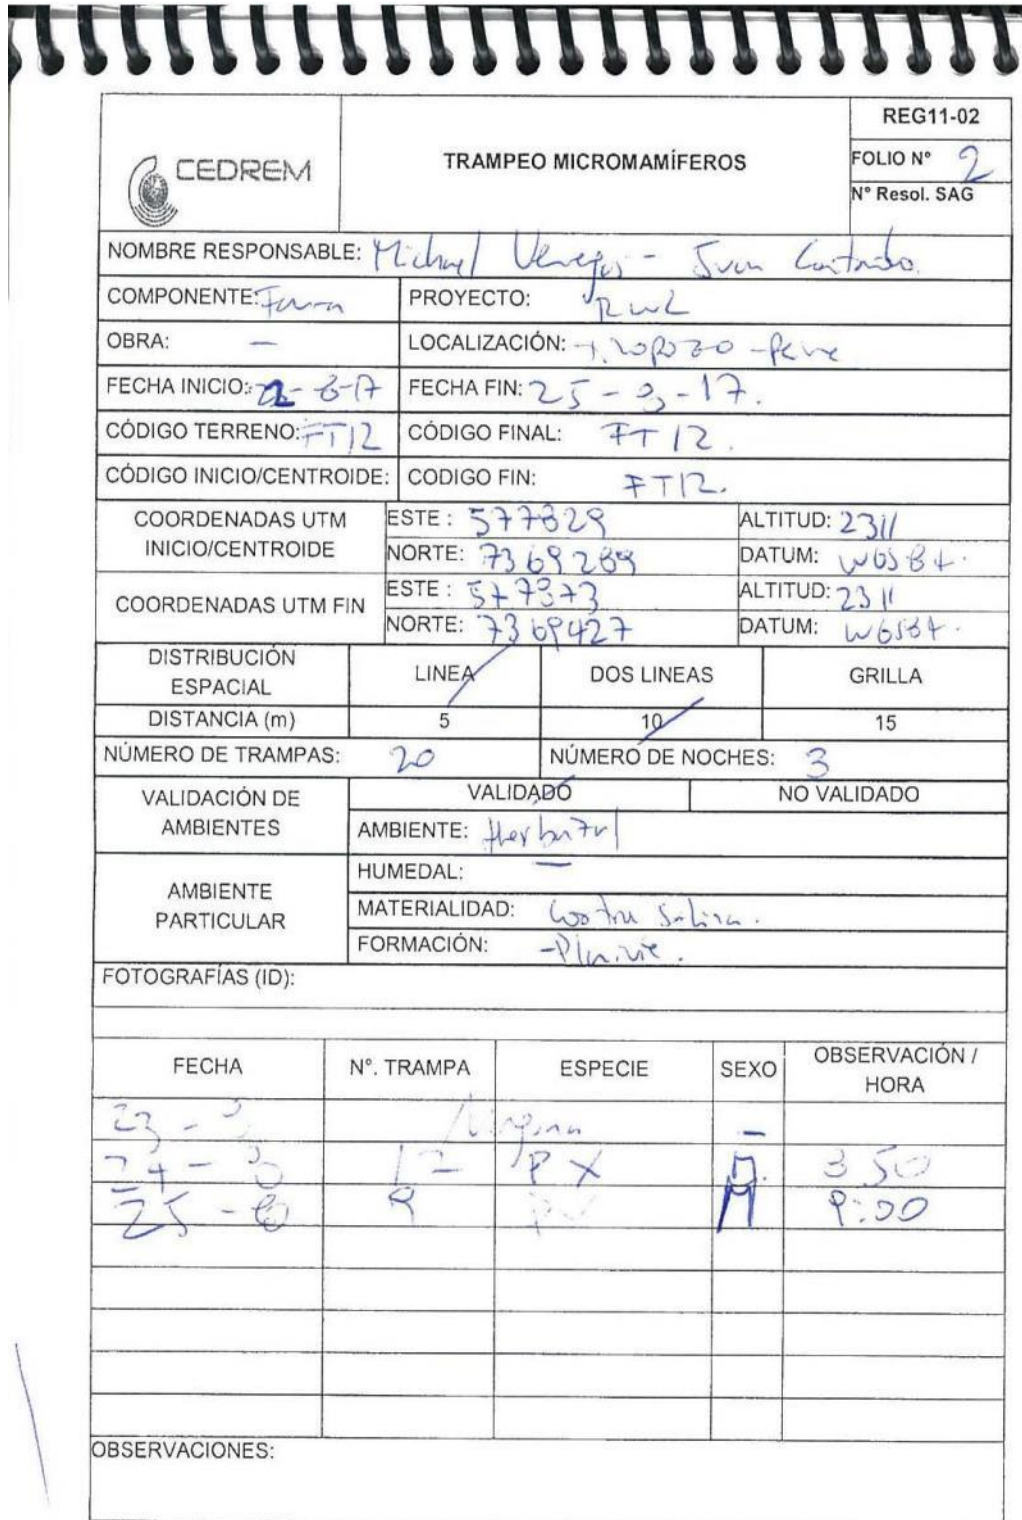 REG11-02
CEDREM
TRAMPEO MICROMAMÍFEROS
FOLIO N° 2
N° Resol. SAG
NOMBRE RESPONSABLE: Michael Venegas - Juan
COMPONENTE: Fauna PROYECTO:
OBRA: — LOCALIZACIÓN:
FECHA INICIO: 22-8-17 FECHA FIN: 25-8-17.
CÓDIGO TERRENO: FT12 CÓDIGO FINAL: FT12.
CÓDIGO INICIO/CENTROIDE: CODIGO FIN: FT12.
COORDENADAS UTM INICIO/CENTROIDE ESTE : 577829 ALTITUD: 2311
NORTE: 7369289 DATUM: WGS84.
COORDENADAS UTM FIN ESTE : 577873 ALTITUD: 2311
NORTE: 7369427 DATUM: WGS84.
DISTRIBUCIÓN ESPACIAL LINEA DOS LINEAS GRILLA
DISTANCIA (m) 5 10 15
NÚMERO DE TRAMPAS: 20 NÚMERO DE NOCHES: 3
VALIDACIÓN DE AMBIENTES VALIDADO NO VALIDADO
AMBIENTE: Herbazal
AMBIENTE PARTICULAR HUMEDAL: —
MATERIALIDAD: Costra Salina.
FORMACIÓN: Planicie.
FOTOGRAFÍAS (ID):
FECHA N°. TRAMPA ESPECIE SEXO OBSERVACIÓN / HORA
23 - 8 Ninguna —
24 - 8 12 PX
25 - 8 9 9:00
OBSERVACIONES: